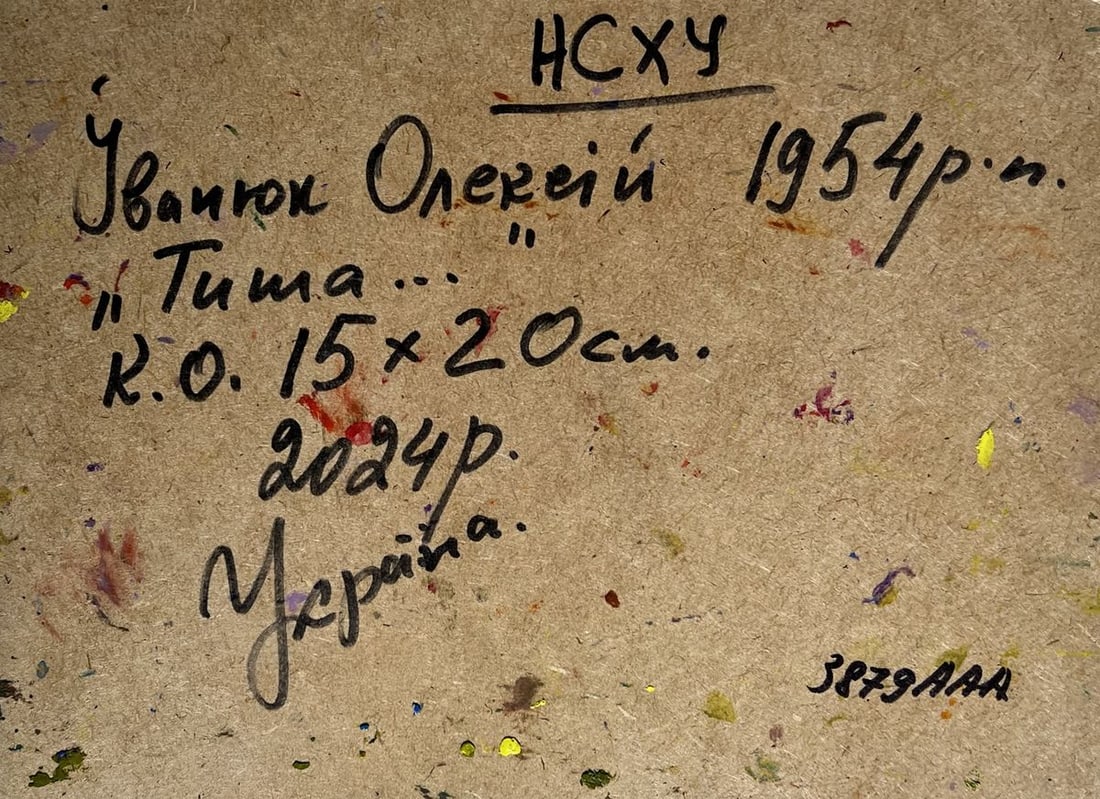 НСХУ
Іванюк Олексій 1954р.н.
„Тиша..."
К.О. 15×20см.
2024р.
Україна.
3879AAA